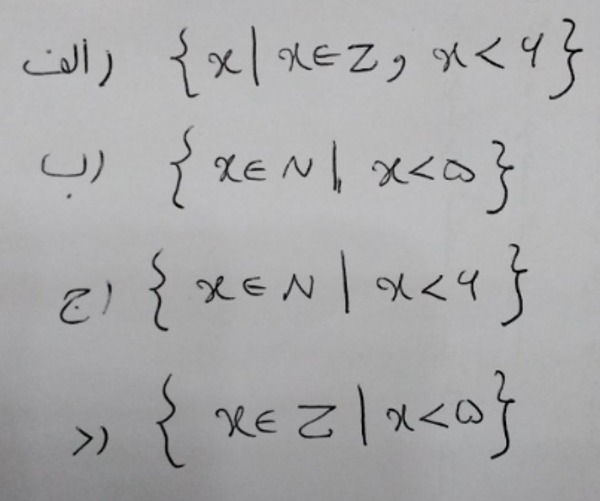 الف) {x | x∈Z و x<۶}
ب) {x∈N | x<۵}
ج) {x∈N | x<۶}
د) {x∈Z | x<۵}